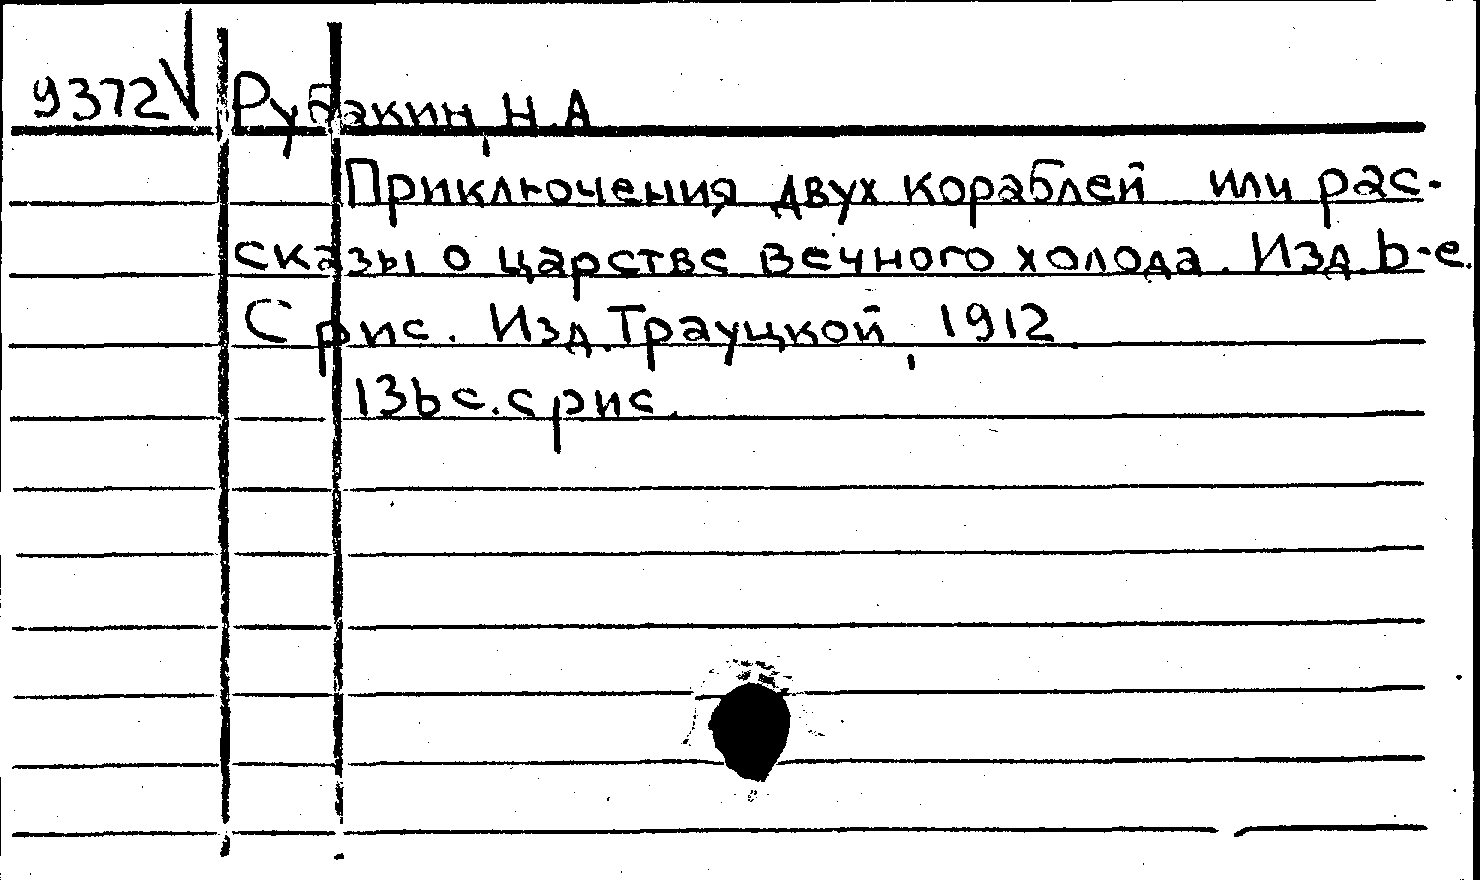 9372 Рубакин, Н.А
Приключения двух кораблей или рас-
сказы о царстве вечного холода. Изд. 6-е.
С рис. Изд. Трауцкой, 1912.
136 с. с рис.